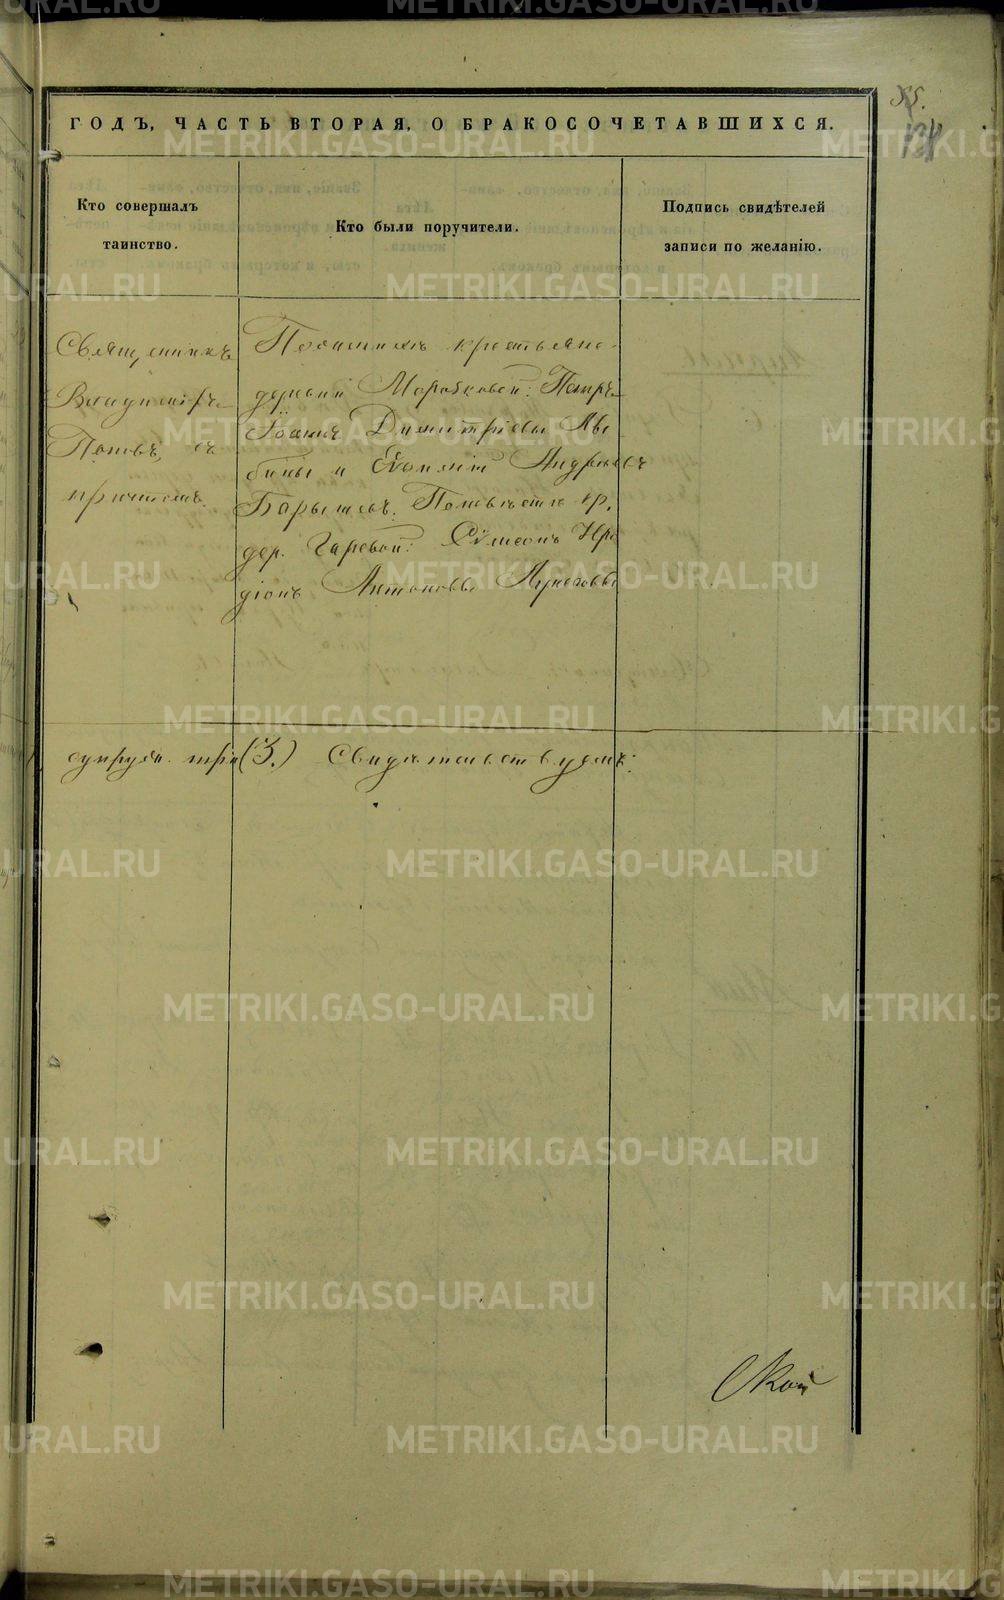 ГОДЪ, ЧАСТЬ ВТОРАЯ, О БРАКОСОЧЕТАВШИХСЯ.
Кто совершалъ
таинство.
Кто были поручители.
Подпись свидѣтелей
записи по желанію.
Священникъ
Владиміръ
Поповъ, съ
причтомъ.
По женихѣ крестьяне
деревни Морозковой: Петръ
Іоаннъ Димитріевы
и Андреевъ
Барышевъ. По невѣстѣ кр.
дер. Гаревой: Сѵмеонъ
діонъ Антоновы
супруж. три (3.) Свидѣтельствуемъ:
METRIKI.GASO-URAL.RU